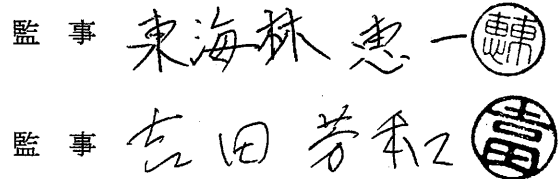 監事 東海林 惠一
監事 吉田 芳和